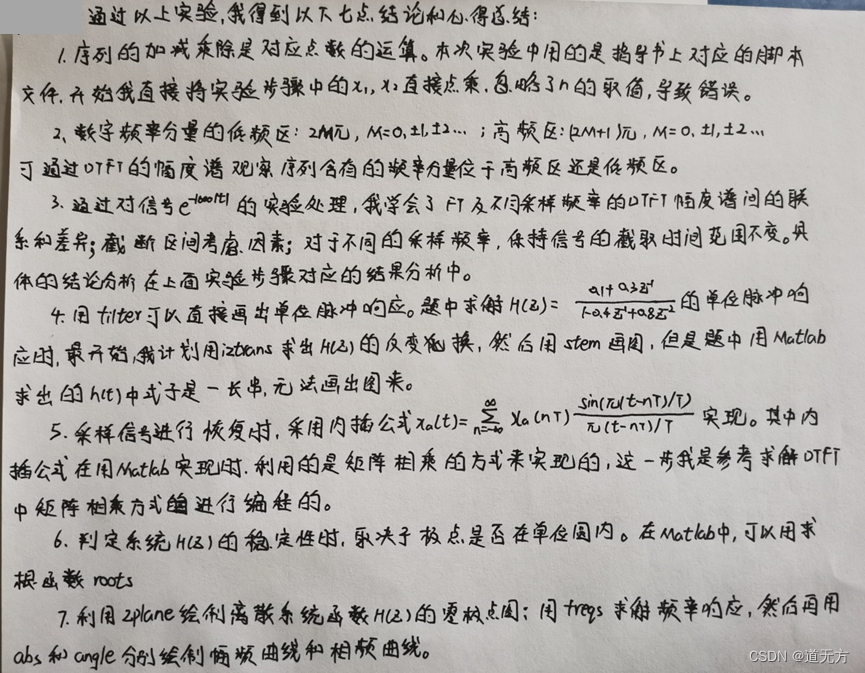 通过以上实验,我得到以下七点结论和心得总结:
1. 序列的加减乘除是对应点数的运算。本次实验中用的是指导书上对应的脚本
文件.开始我直接将实验步骤中的x₁, x₂直接点乘.忽略了n的取值,导致错误。
2、数字频率分量的低频区: 2Mπ, M=0,±1,±2… ; 高频区:(2M+1)π, M=0,±1,±2…
可通过DTFT的幅度谱观察序列含有的频率分量位于高频区还是低频区。
3. 通过对信号e^-1000|t|的实验处理,我学会了FT及不同采样频率的DTFT幅度谱间的联
系和差异; 截断区间考虑因素; 对于不同的采样频率,保持信号的截取时间范围不变。具
体的结论分析在上面实验步骤对应的结果分析中。
4. 用filter可以直接画出单位脉冲响应。题中求解H(Z)= (0.1+0.3Z⁻¹)/(1-0.4Z⁻¹+0.8Z⁻²) 的单位脉冲响
应时,最开始,我计划用iztrans求出H(Z)的反变换,然后用stem画图,但是题中用Matlab
求出的h(t)中式子是一长串,无法画出图来。
5. 采样信号进行恢复时,采用内插公式xa(t)= ∑_{n=-∞}^{∞} xa(nT) sin(π(t-nT)/T)/(π(t-nT)/T) 实现。其中内
插公式在用Matlab实现时.利用的是矩阵相乘的方式来实现的,这一步我是参考求解DTFT
中矩阵相乘方式进行编程的。
6. 判定系统H(Z)的稳定性时.取决于极点是否在单位圆内。在Matlab中,可以用求
根函数roots
7. 利用zplane绘制离散系统函数H(Z)的零极点图; 用freqs求解频率响应,然后再用
abs和angle分别绘制幅频曲线和相频曲线。
CSDN @道无方